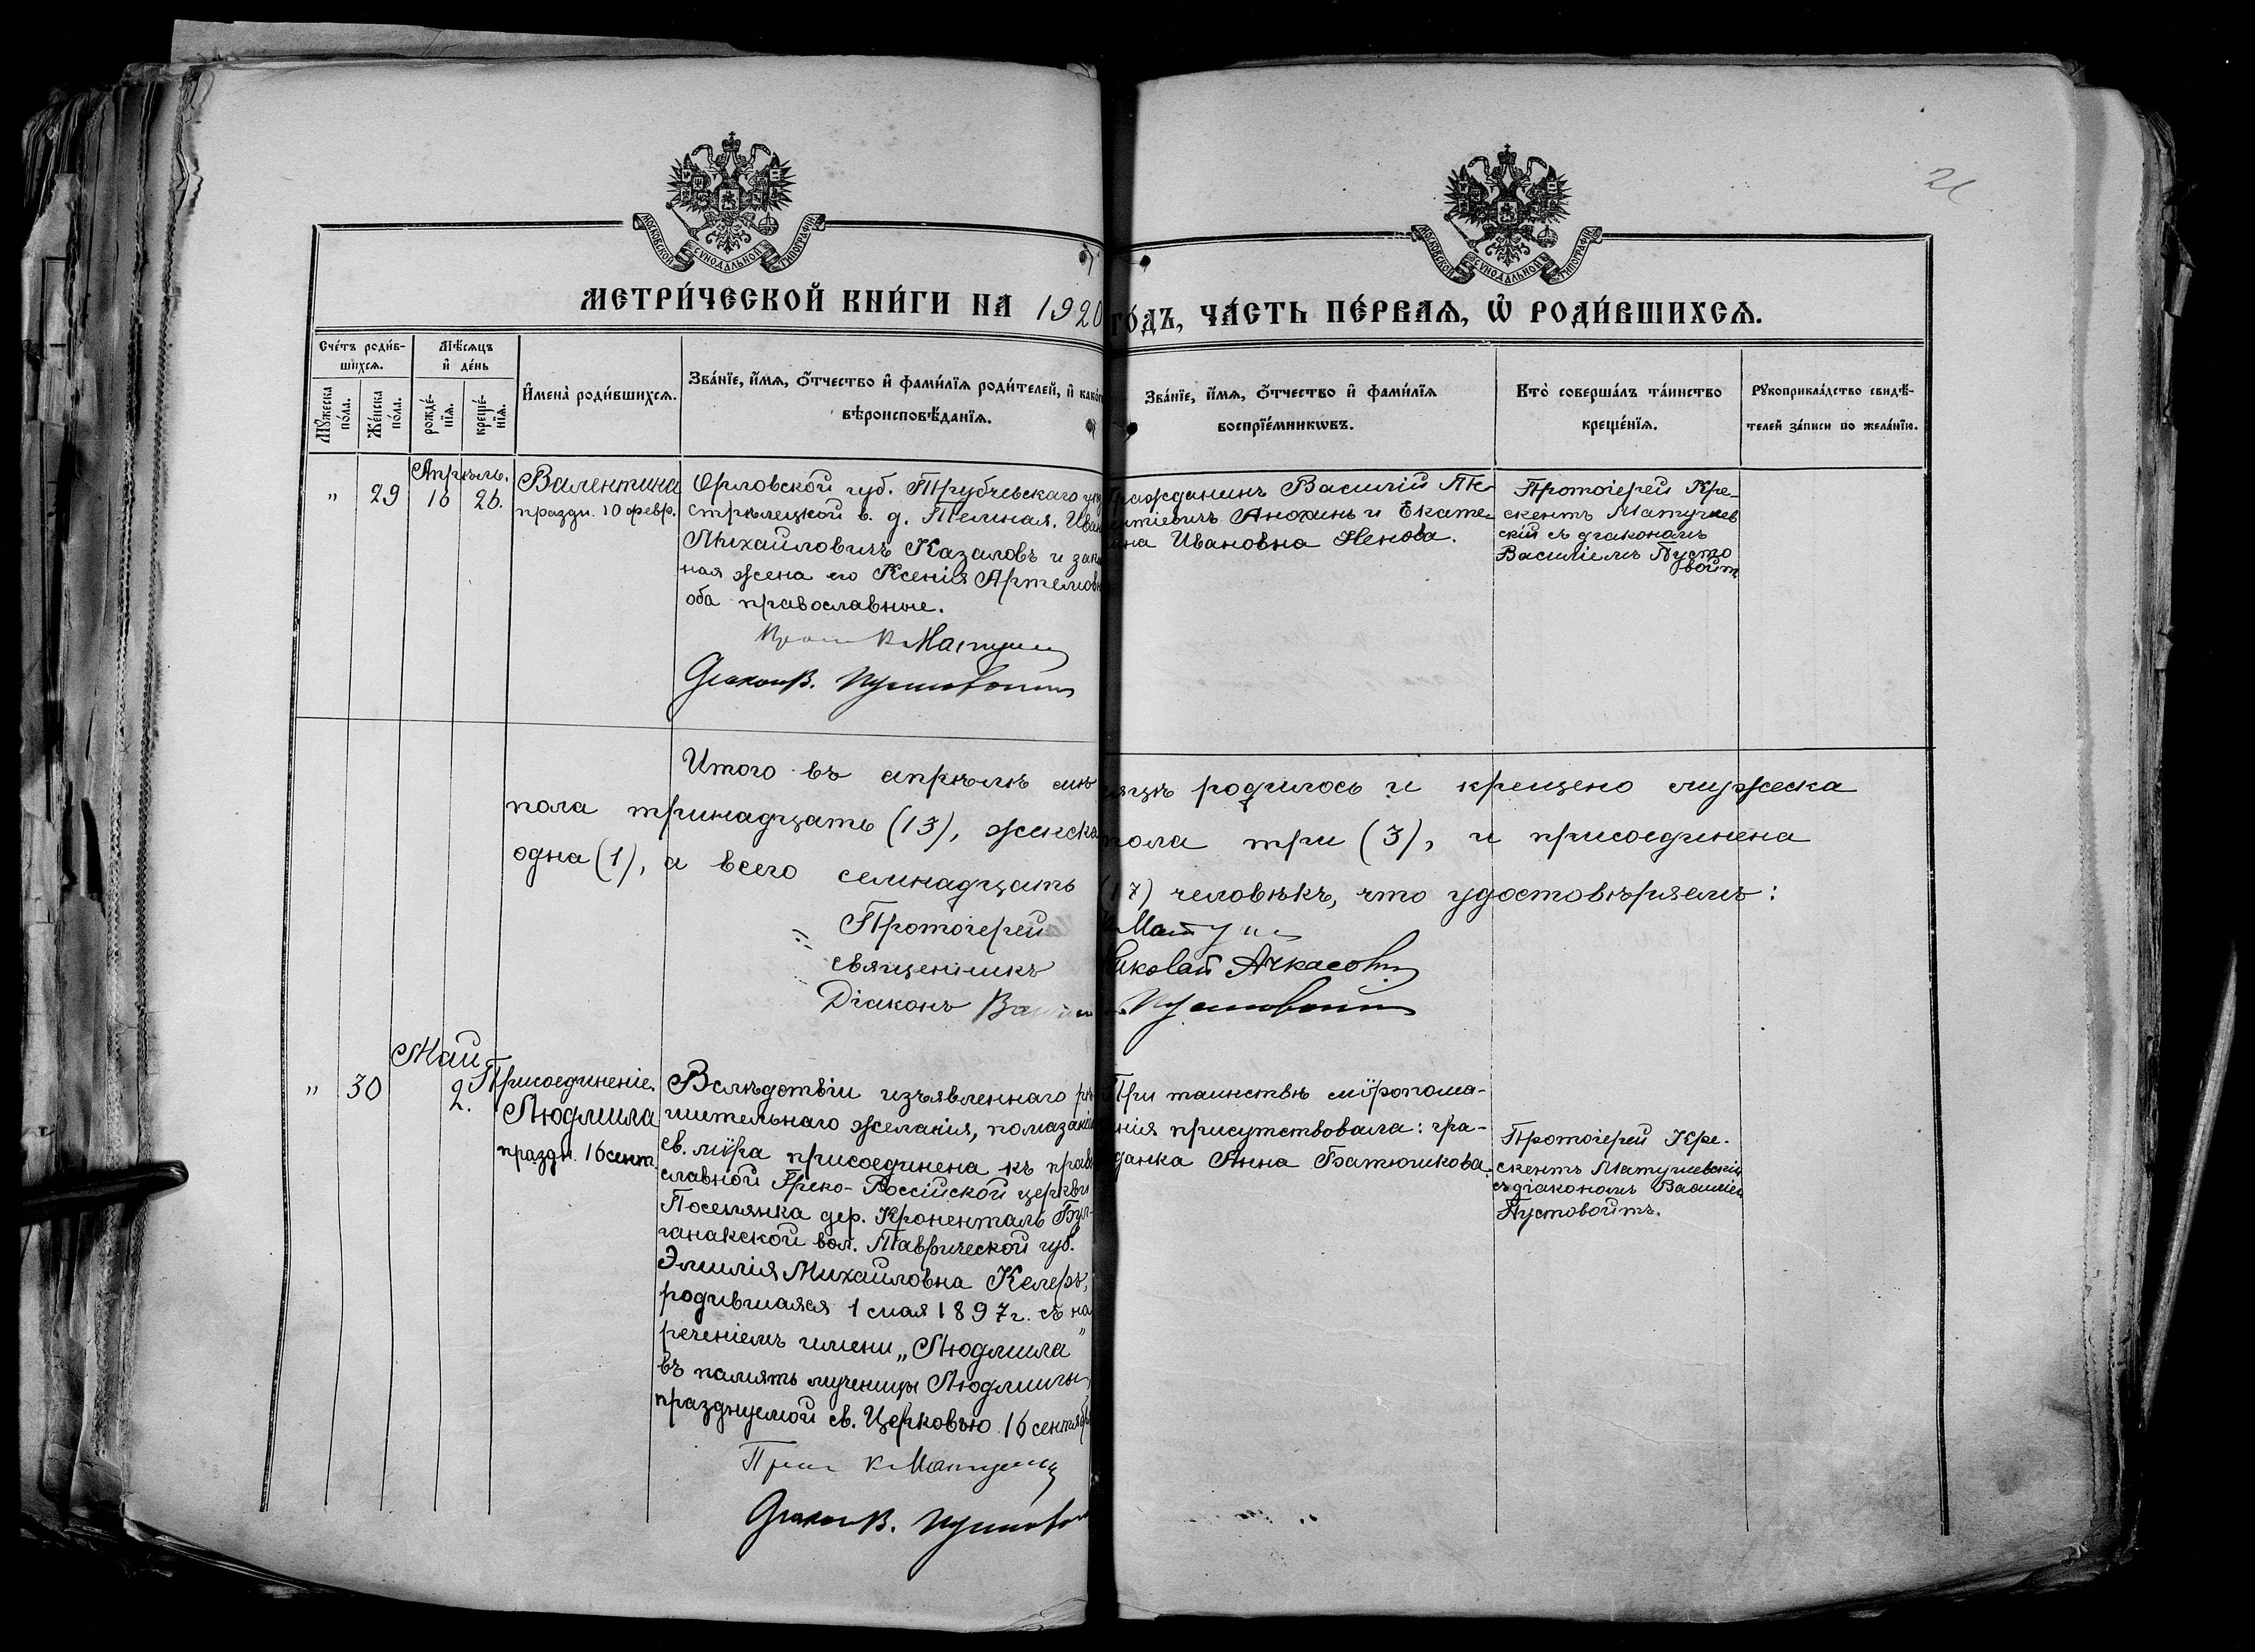 21
МОСКОВСКОЙ СѴНОДАЛЬНОЙ ТИПОГРАФІИ
МОСКОВСКОЙ СѴНОДАЛЬНОЙ ТИПОГРАФІИ
МЕТРИ́ЧЕСКОЙ КНИ́ГИ НА 1920 ГО́ДЪ, ЧА́СТЬ ПЕ́РВАѦ, Ѡ҆ РОДИ́ВШИХСѦ.
Сче́тъ роди́в-
шихсѧ.
Мѣ́сѧцъ
и҆ де́нь
Мꙋ́жеска
по́ла.
Же́нска
по́ла.
рожде́-
нїѧ.
креще́-
нїѧ.
И҆мена̀ роди́вшихсѧ.
Зва́нїе, и҆́мѧ, ѻ҆́тчество и҆ фами́лїѧ роди́телей, и҆ како́гѡ
вѣроисповѣ́данїѧ.
Зва́нїе, и҆́мѧ, ѻ҆́тчество и҆ фами́лїѧ
воспрїе́мникѡвъ.
Кто̀ соверша́лъ та́инство
креще́нїѧ.
Рꙋкоприкла́дство свидѣ́-
телей за́писи по жела́нїю.
Апрѣль.
" 29 16 26.
Валентина
праздн. 10 февр.
Орловской губ. Трубчевскаго
Стрѣлецкой в. д. Темная. Иван
Михайловичъ Казаловъ и закон
ная жена его Ксенія Артемовна
оба православные.
К Матуш
Діакон В. Пустовойтъ
Гражданинъ Василій
Анохинъ и Екате-
ина Ивановна Ненова.
Протоіерей Кре-
скентъ Матушев
скій съ діакономъ
Василіемъ Пусто
войт
Итого въ апрѣлѣ мѣсяцѣ родилось и крещено мужеска
пола тринадцать (13), женска пола три (3), и присоединена
одна (1), а всего семнадцать (17) человѣкъ, что удостовѣряемъ:
Протоіерей К Матуш
священникъ Николай Ачкасовъ
Діаконъ Василій Пустовойтъ
Май.
" 30 2.
Присоединеніе.
Людмила
праздн. 16 сент.
Вслѣдствіи изъявленнаго рѣ
шительнаго желанія, помазаніи
св. мѵра присоединена къ право
славной Греко-Россійской церкви
Поселянка дер. Кроненталь Бул-
ганакской вол. Таврической губ.
Эмилія Михайловна Келеръ,
родившаяся 1 мая 1897 г. съ на
реченіемъ имени „Людмила"
въ память мученицы Людмилы,
празднуемой св. Церковью 16 сентября
К Матуш
Діакон В. Пустовойт
При таинствѣ мѵропома-
нія присутствовала: гра-
данка Анна Батюшкова.
Протоіерей Кре-
скентъ Матушевскій
съ діакономъ Василіем
Пустовойтъ.